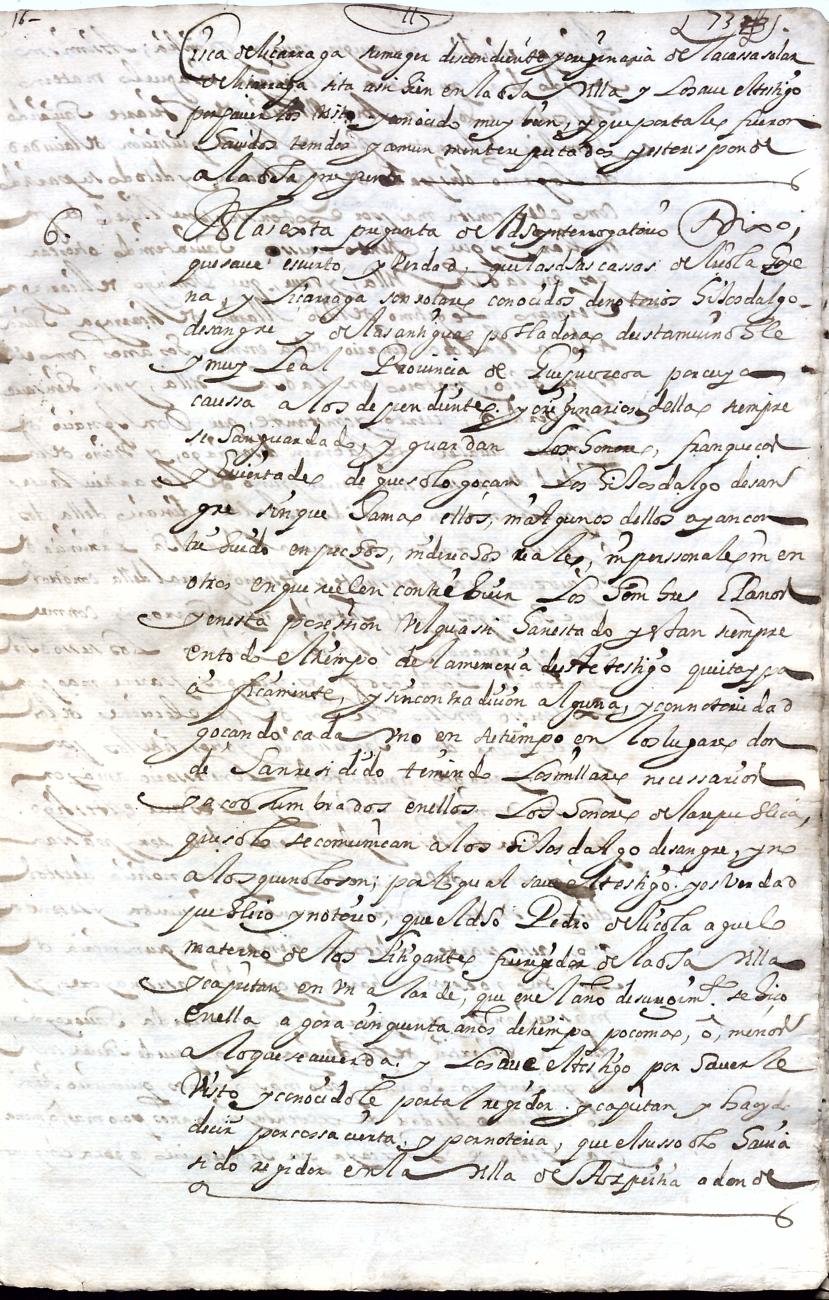 16-
11
73
cisca de liçarraga su muger decendiente y originaria de la cassa solar
de liçarraga sita asi bien en la dha Villa y Lo saue el testigo
por hauerlos visto y conocido muy bien, y que por tales fueron
hauidos tenidos y comun mente reputados y esto responde
a la dha pregunta
6. A la sexta pregunta del dho ynterrogatorio Dixo,
que saue es cierto, y Verdad, que las dhas cassas de Licola
na, y Liçarraga son solares conocidos de notorios hijosdalgo
de sangre y de las antiguas pobladoras desta muy noble
y muy Leal Prouincia de Guipuzcoa por cuya
caussa a los dependientes y originarios dellas siempre
se han guardado, y guardan Los honores, franqueças
y Liuertades de que solo goçan Los hijosdalgo de san
gre sin que Jamas ellos, ni algunos dellos ayan con
tribuido en pechos, ni derechos reales, ni personales ni en
otros en que suelen contribuir Los hombres llanos
y en esta posession Vel quasi han estado y estan siempre
en todo el tiempo de la memoria deste testigo quieta y pa
cificamente, y sin contradicion alguna, y con notoriedad
goçando cada Vno en su tiempo en los lugares don
de han residido teniendo Los millares necessarios
y acostumbrados en ellos Los honores de la republica,
que solo se comunican a los hijosdalgo de sangre, y no
a los que no lo son; por lo qual saue el testigo y es Verdad
publico y notorio, que el dho Pedro de Licola aguelo
materno de los Litigantes fue regidor de la dha Villa
y capitan en Vn alarde, que en el año de su regimto. se hiço
en ella agora cinquenta años de tiempo poco mas, o, menos
a lo que se acuerda, y Lo saue el testigo por hauerle
Visto y conocidole por tal regidor y capitan y
decir por cossa cierta, y por notoria, que el susso dho hauia
sido regidor en la Villa de Azpeitia adonde